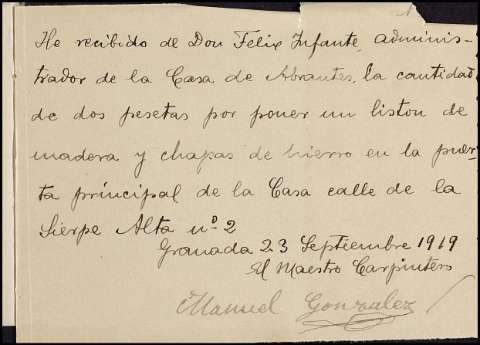 He recibido de Don Felix Infante, adminis-
trador de la Casa de Abrantes, la cantidad
de dos pesetas por poner un liston de
madera y chapas de hierro en la puer-
ta principal de la Casa calle de la
Sierpe Alta nº 2
Granada 23 Septiembre 1919
El Maestro Carpintero
Manuel Gonzalez